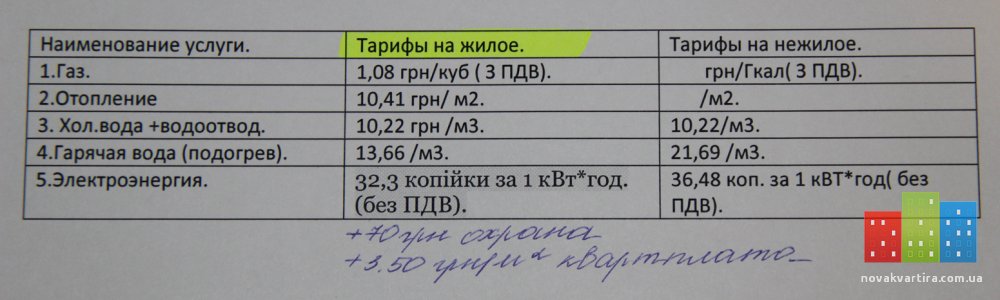 Наименование услуги. Тарифы на жилое. Тарифы на нежилое.
1.Газ. 1,08 грн/куб ( З ПДВ). грн/Гкал( З ПДВ).
2.Отопление 10,41 грн/ м2. /м2.
3. Хол.вода +водоотвод. 10,22 грн /м3. 10,22/м3.
4.Гарячая вода (подогрев). 13,66 /м3. 21,69 /м3.
5.Электроэнергия. 32,3 копійки за 1 кВт*год. 36,48 коп. за 1 кВТ*год( без
(без ПДВ). ПДВ).
+70 грн охрана
+3.50 грн/м2 квартплата
novakvartira.com.ua